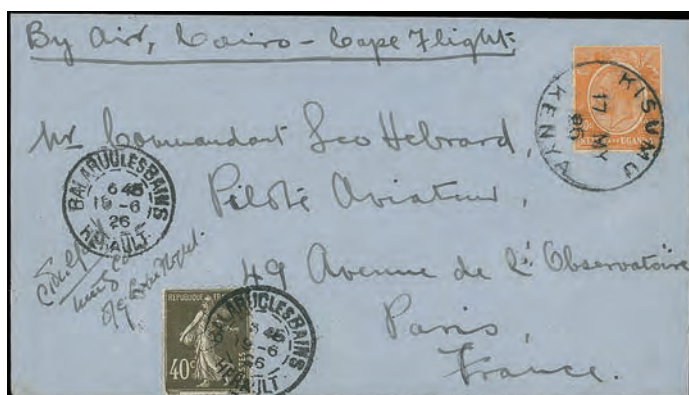 By Air, Cairo - Cape Flight.
KISUMU
17 MY
KENYA
KENYA AND UGANDA
Mr Commandant Leo Hebrard,
Pilote Aviateur,
49 Avenue de l'Observatoire
Paris,
France.
BALARUCLESBAINS
6 45
19 - 6
26
HERAULT
REPUBLIQUE
40c
POSTES
BALARUCLESBAINS
6 45
19 - 6
26
HERAULT